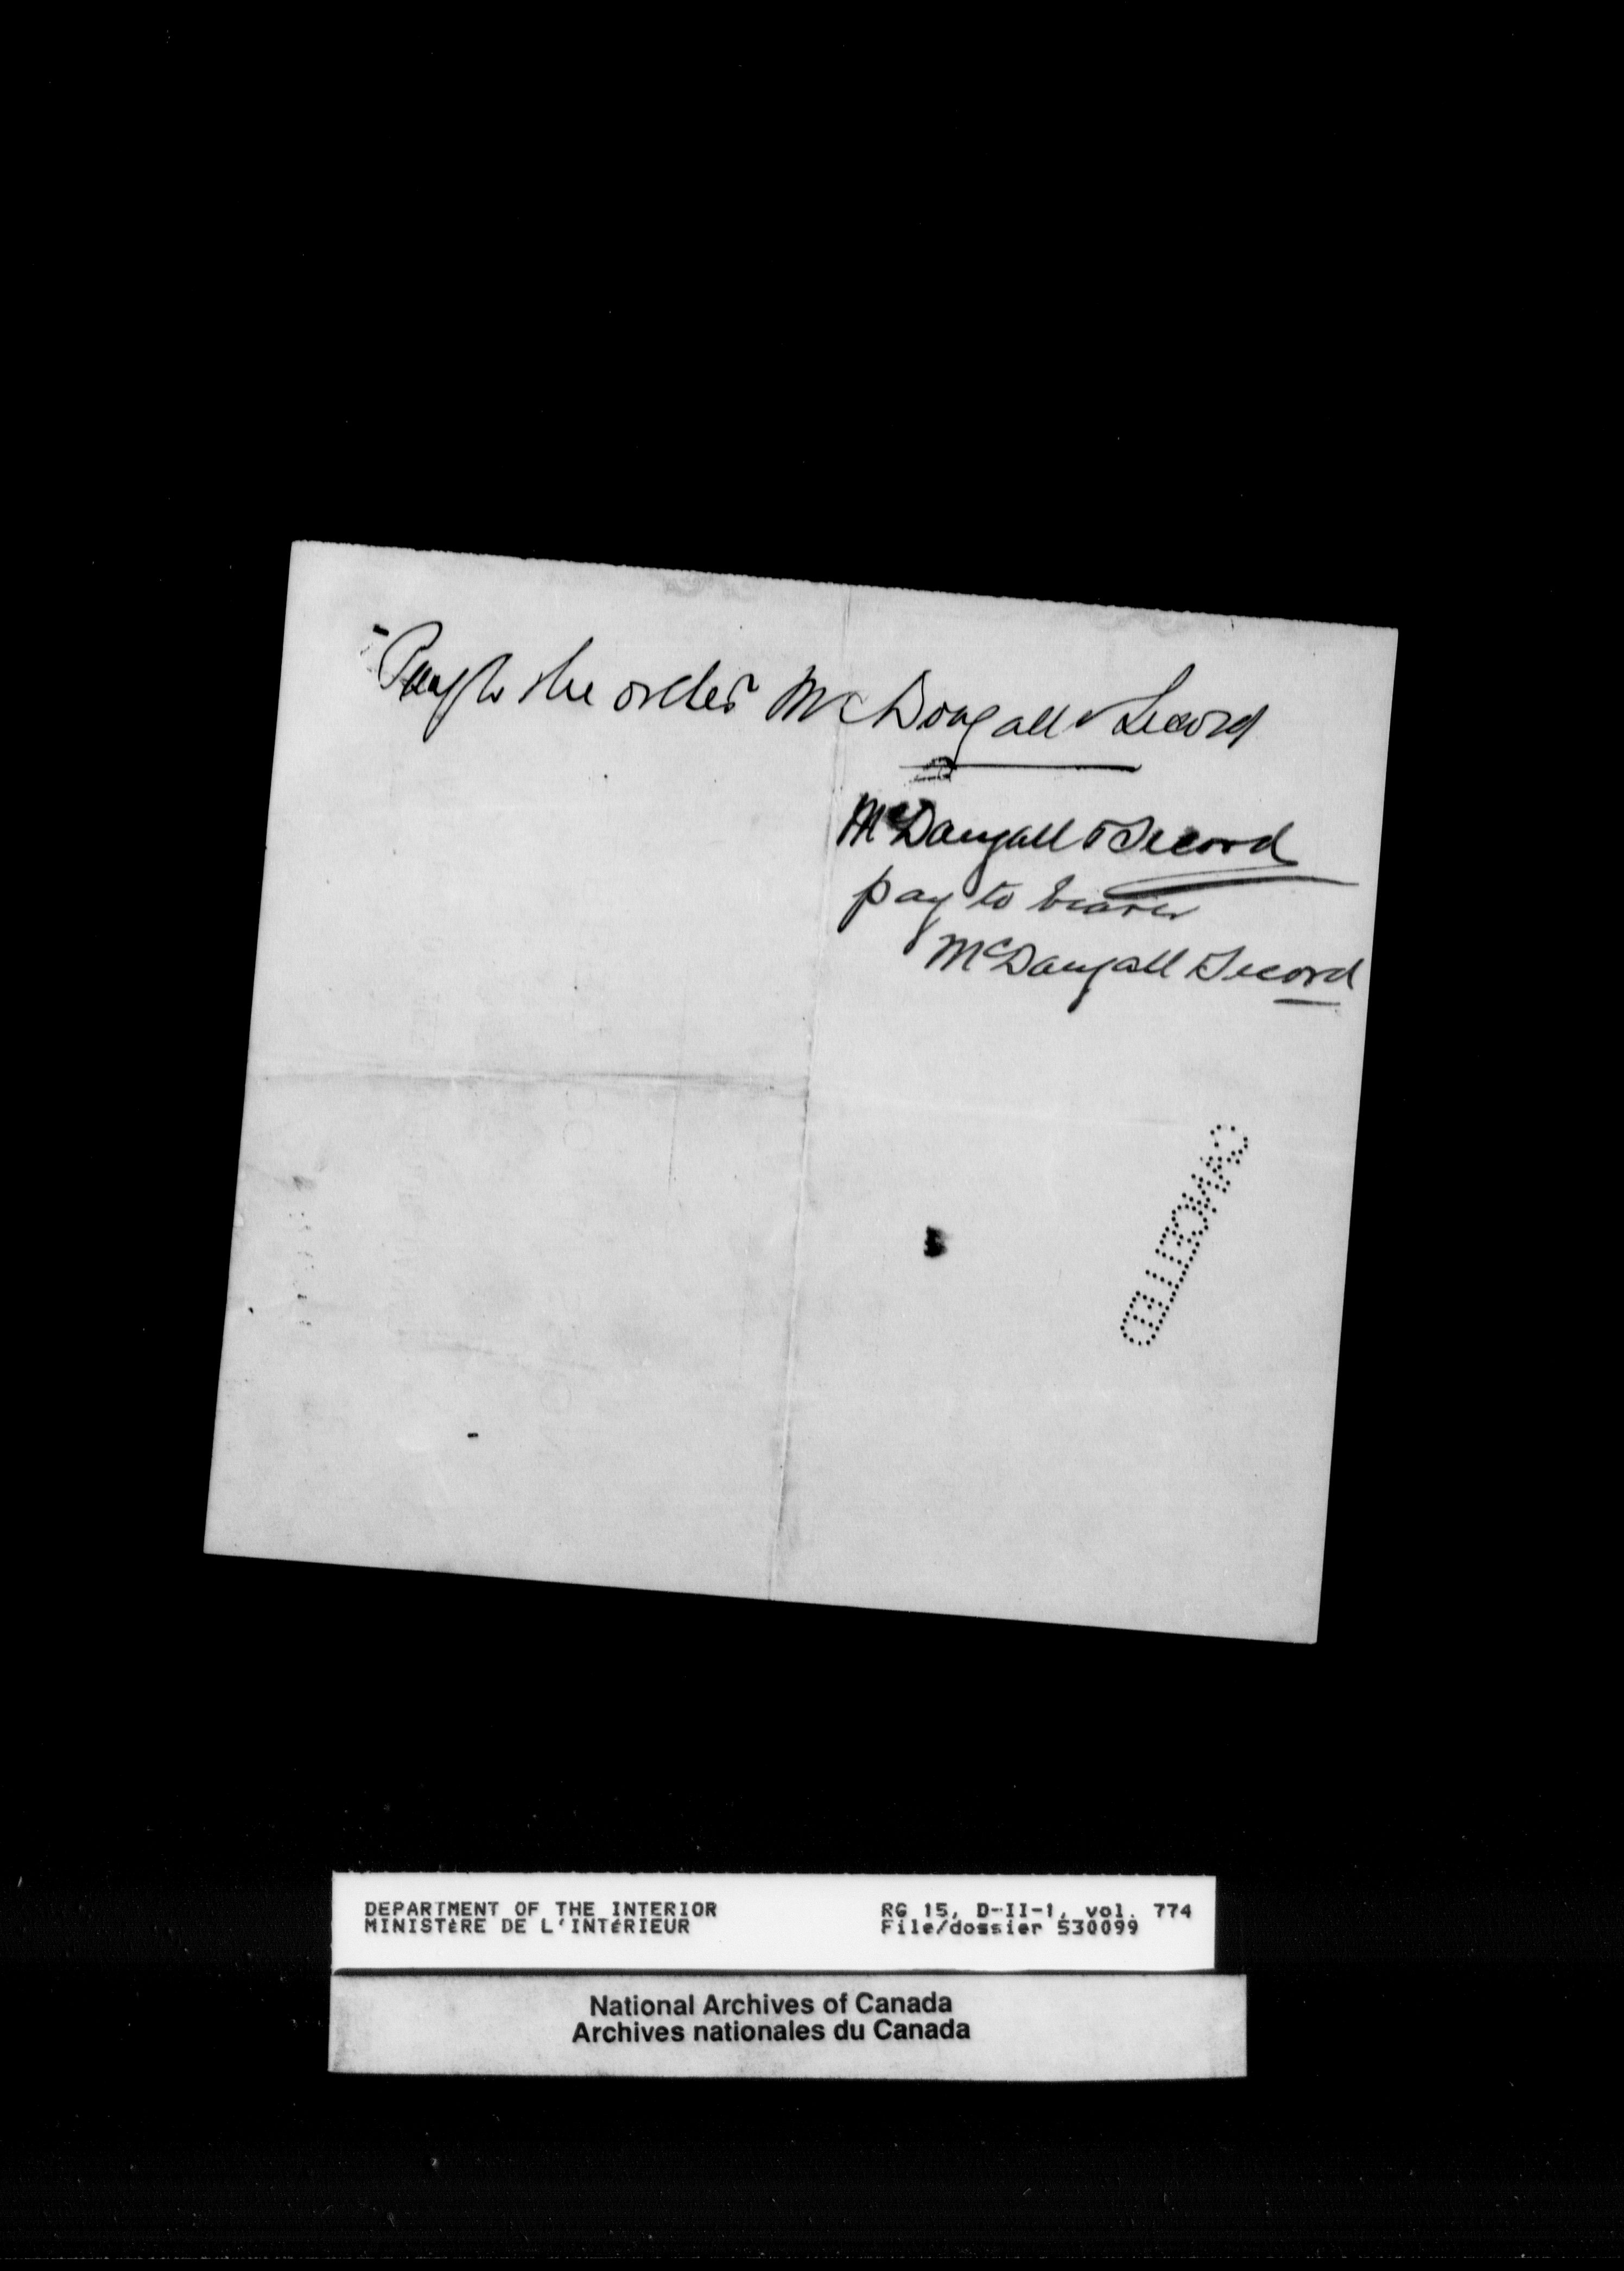 Pay to the order McDougall & Secord
McDougall & Secord
pay to bearer
McDougall Secord
CANCELLED
DEPARTMENT OF THE INTERIOR RG 15, D-II-1, vol. 774
MINISTÈRE DE L'INTÉRIEUR File/dossier 530099
National Archives of Canada
Archives nationales du Canada